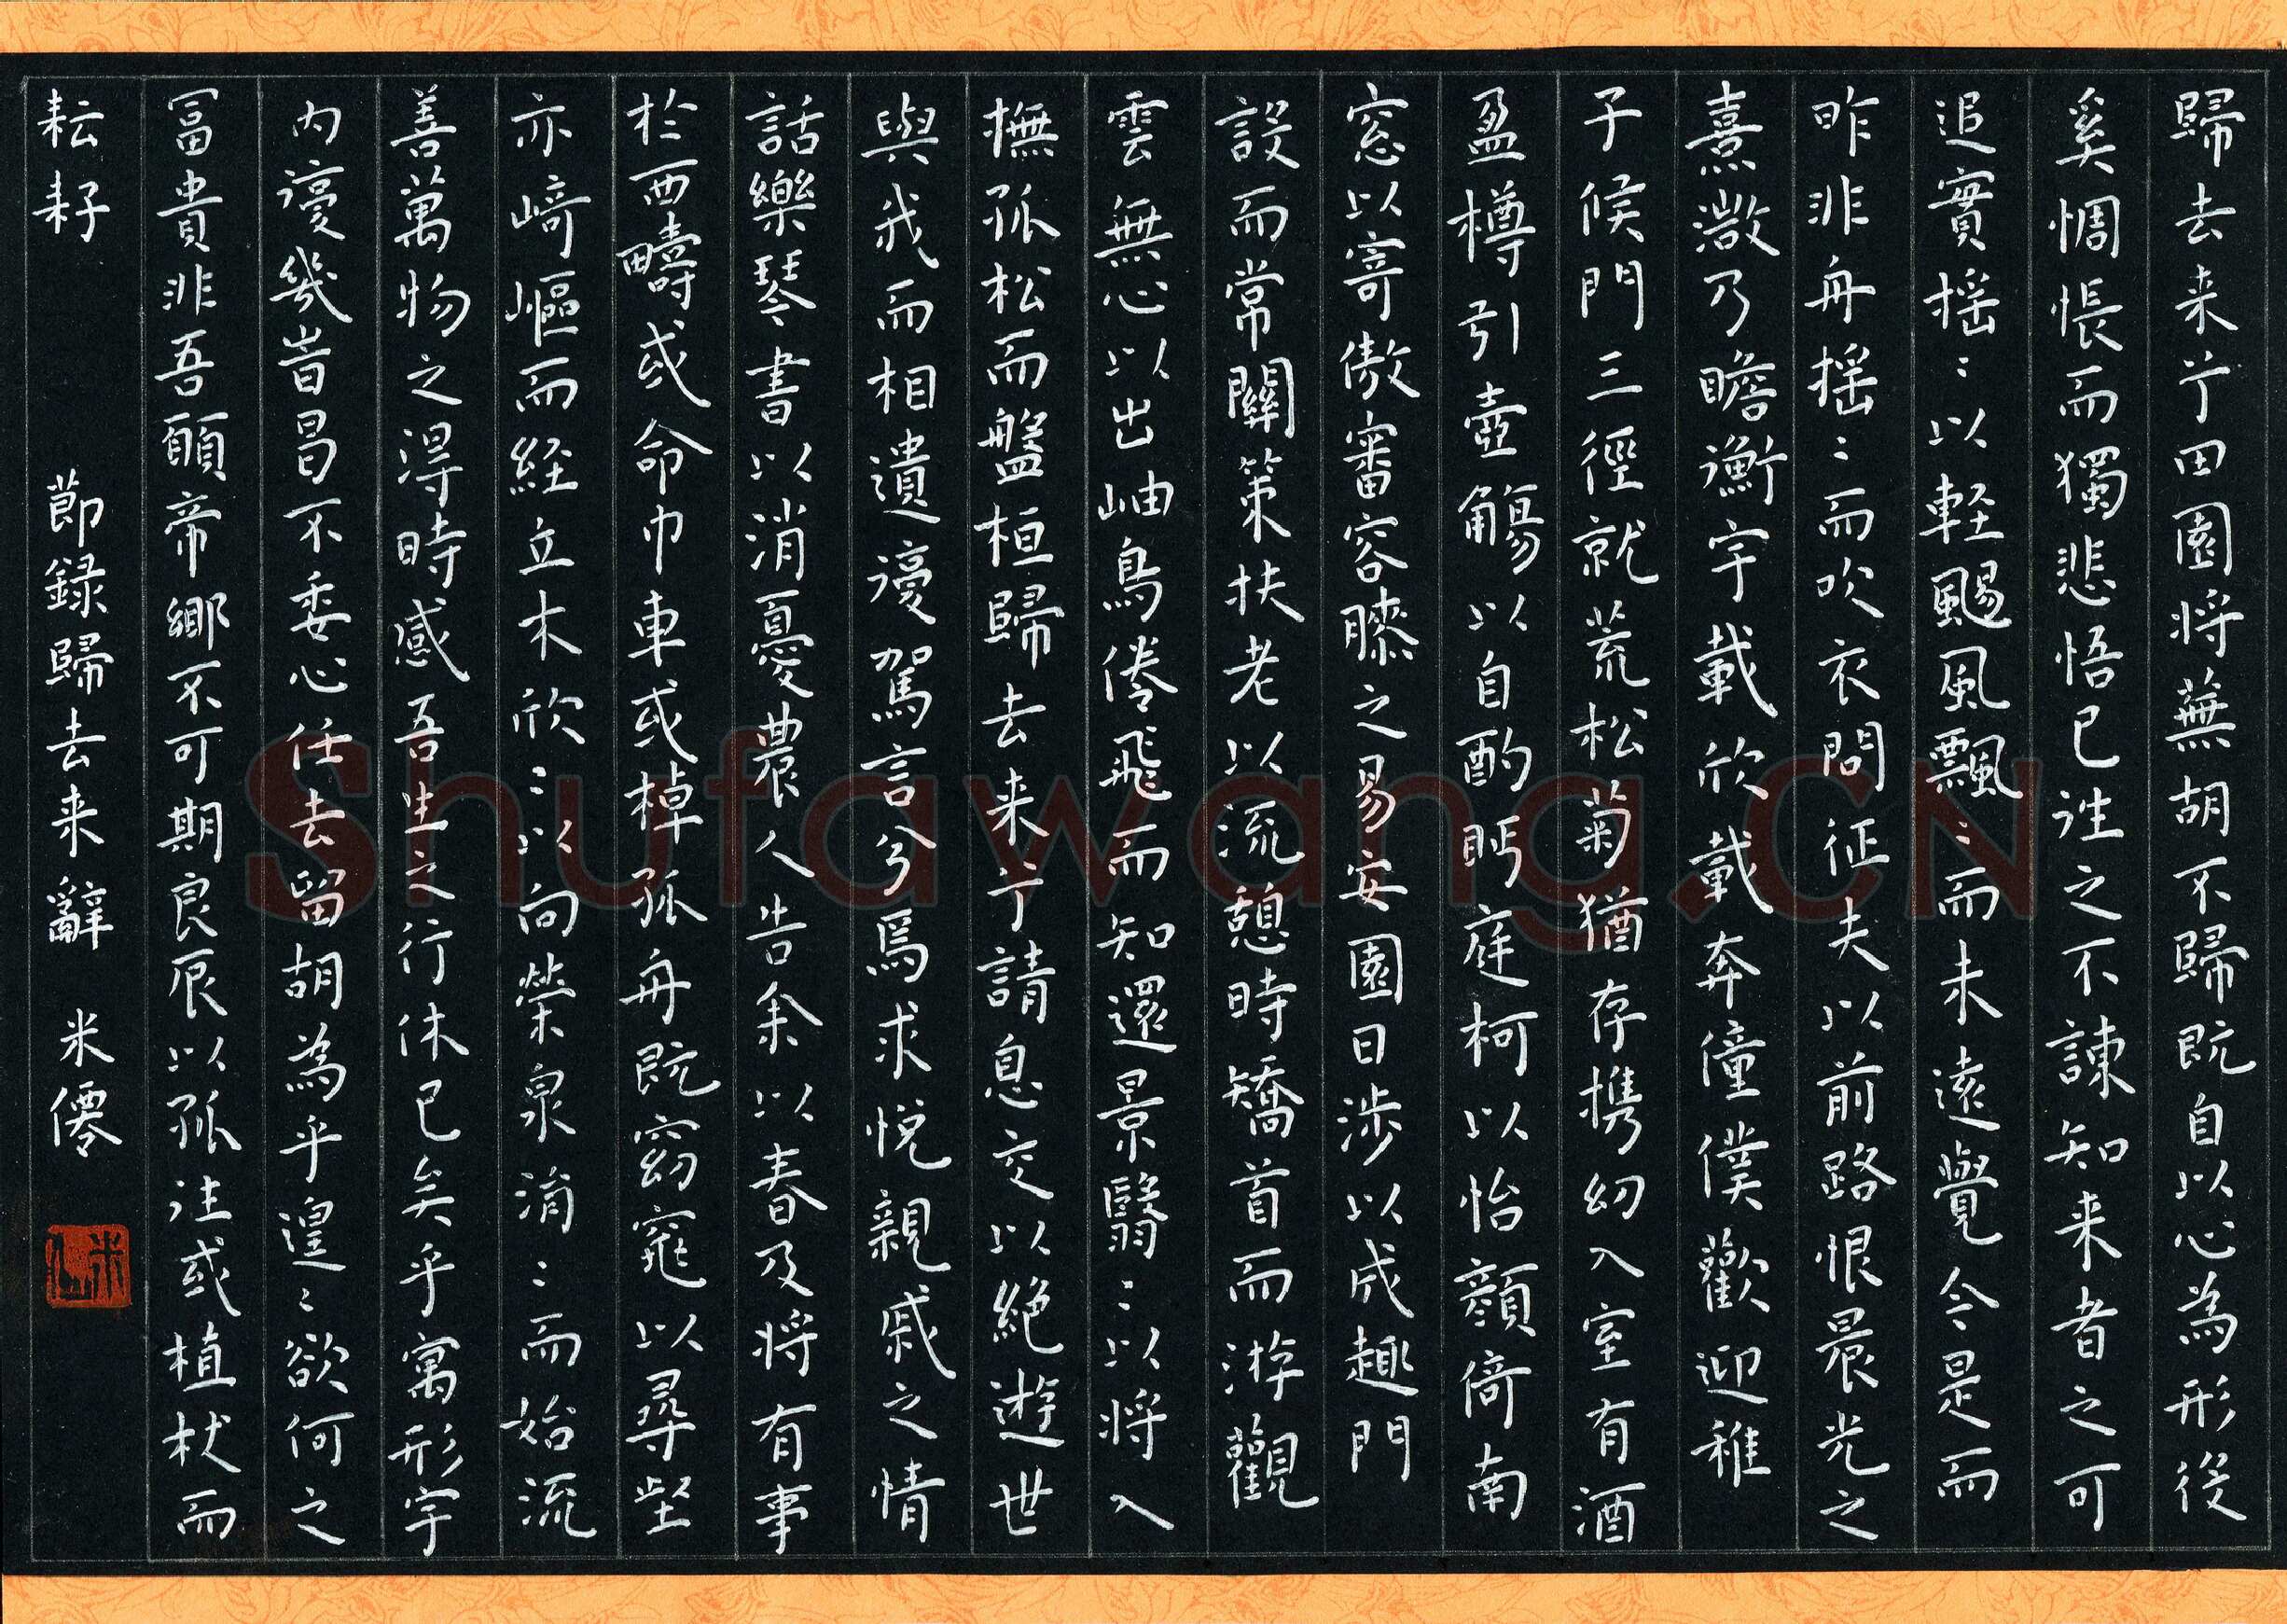 歸去来兮田園将蕪胡不歸既自以心為形役
奚惆悵而獨悲悟已往之不諫知来者之可
追實揺〻以軽颺風飄〻而未遠覺今是而
昨非舟揺〻而吹衣問征夫以前路恨晨光之
熹微乃瞻衡宇載欣載奔僮僕歡迎稚
子候門三徑就荒松菊猶存携幼入室有酒
盈樽引壺觴以自酌眄庭柯以怡顔倚南
窓以寄傲審容膝之易安園日渉以成趣門
設而常關策扶老以流憩時矯首而游觀
雲無心以出岫鳥倦飛而知還景翳〻以将入
撫孤松而盤桓歸去来兮請息交以絶遊世
與我而相遺復駕言兮焉求悦親戚之情
話樂琴書以消憂農人告余以春及将有事
於西疇或命巾車或棹孤舟既窈窕以尋壑
亦崎嶇而経立木欣〻以向榮泉涓〻而始流
善萬物之得時感吾生之行休已矣乎寓形宇
内復幾旹曷不委心任去留胡為乎遑〻欲何之
冨貴非吾願帝鄉不可期良辰以孤往或植杖而
耘耔 節録歸去来辭 米僊
米仙
Shufawang.CN